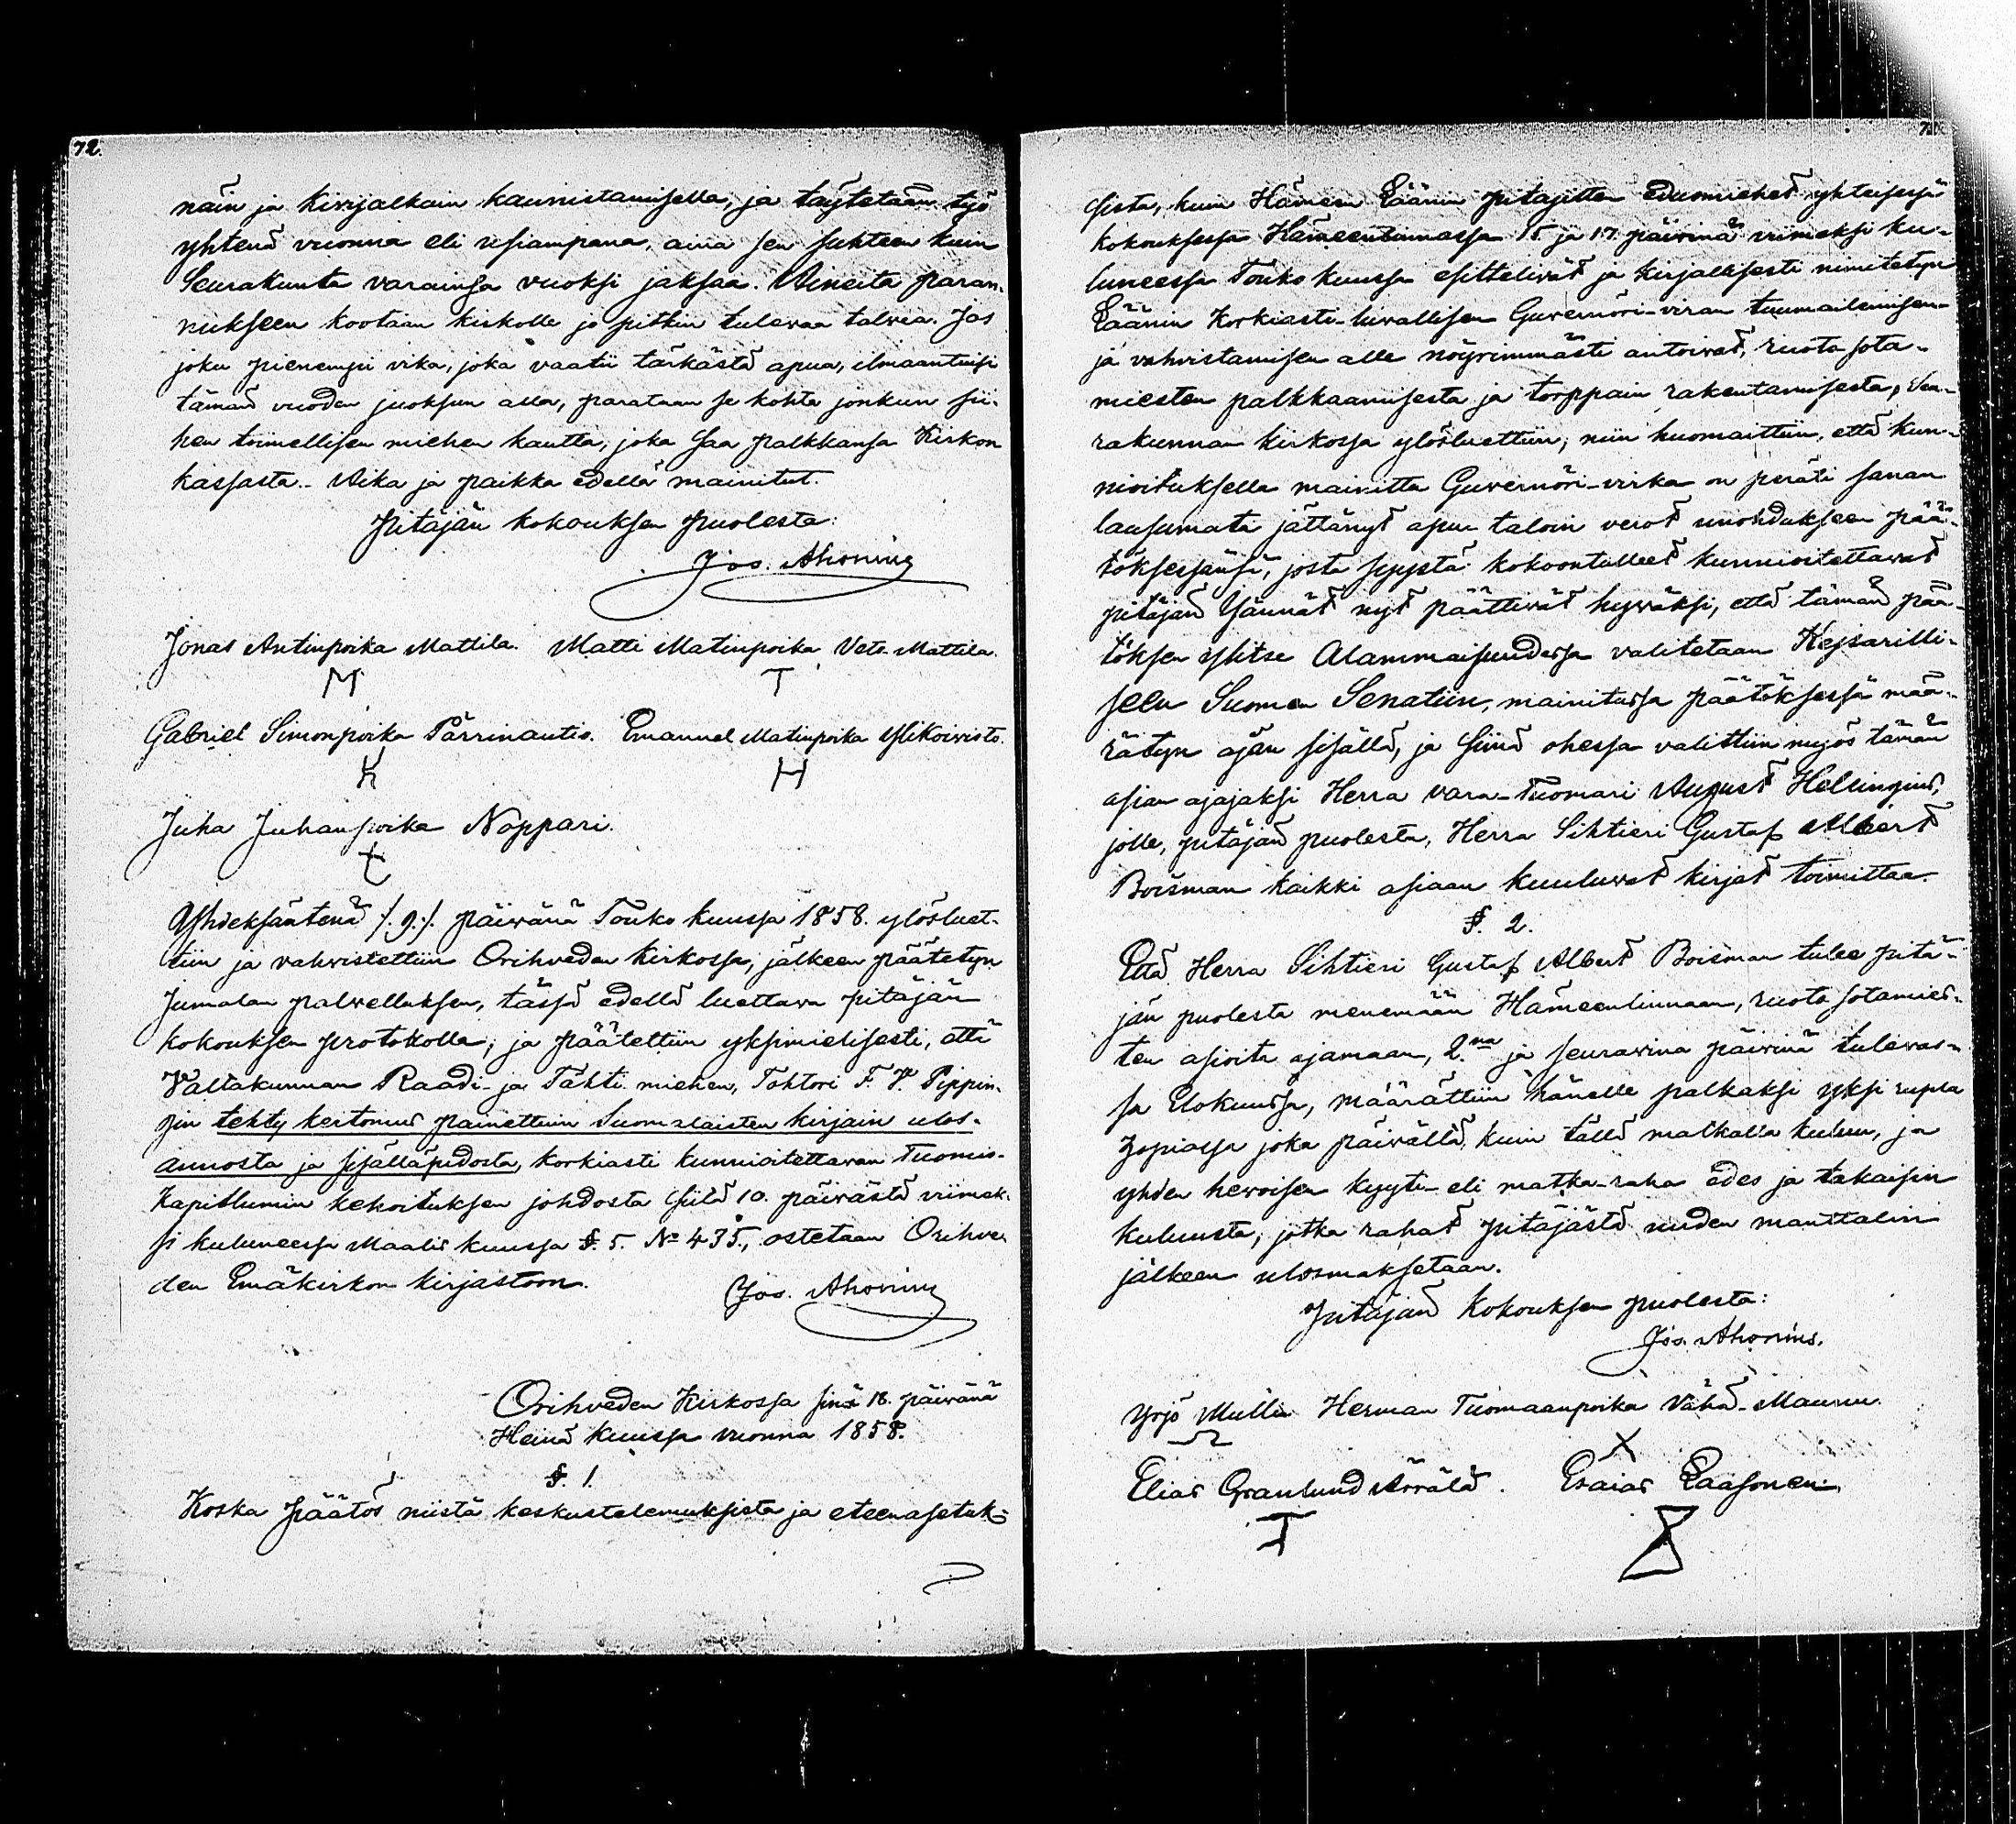 72.
näin ja kivijalkain kaunistamisella, ja täytetään työ
yhtenä vuonna eli usiampana, aina sen suhteen kuin
Seurakunta varainsa vuoksi jaksaa. Aineita paran-
nukseen kootaan kirkolle jo pitkin tulevaa talvea. Jos
joku pienempi vika, joka vaatii tärkästä apua, ilmaantuisi
tämän vuoden juoksun alla, parataan se kohta jonkun sii-
hen toimellisen miehen kautta, joka saa palkkansa Kirkon
kassasta. Aika ja paikka edellä mainitut.
Pitäjän kokouksen puolesta:
Jos. Ahonius
Jonas Antinpoika Mattila. Matti Matinpoika Vete-Mattila.
Gabriel Simonpoika Pärrinautio. Emanuel Matinpoika Ylikoivisto.
Juha Juhanpoika Noppari.
Yhdeksäntenä /:9:/ päivänä Touko kuussa 1858. ylösluet-
tiin ja vahvistettiin Orihveden kirkossa, jälkeen päätetyn
Jumalan palvelluksen, tässä edellä luettava pitäjän
kokouksen protokolla; ja päätettiin yksimielisesti, että
Valtakunnan Raadi- ja Tähti-miehen, Tohtori F. W. Pippin-
gin tehty kertomus painettuin Suomalaisten kirjain ulos-
annosta ja sisälläpidosta, korkiasti kunnioitettavan Tuomio-
Kapitlumin kehoituksen johdosta siitä 10. päivästä viimek-
si kuluneessa Maalis kuussa §. 5. No 435., ostetaan Orihve-
den Emäkirkon kirjastoon.
Jos. Ahonius
Orihveden Kirkossa sinä 18. päivänä
Heinä kuussa vuonna 1858.
§. 1.
Koska päätös niistä keskustelemuksista ja eteenasetuk-
sista, kuin Hämeen Läänin pitäjitten edusmiehet yhteisessä
kokouksessa Hämeenlinnassa 15. ja 17. päivinä viimeksi ku-
luneessa Touko kuussa esittelivät ja kirjallisesti nimitetyn
Läänin Korkiasti-luvallisen Guvernöri-viran tuumailemisen-
ja vahvistamisen alle nöyrimmästi antoivat, ruotu sota-
miesten palkkaamisesta ja torppain rakentamisesta, Seu-
rakunnan kirkossa ylösluettiin; niin huomattiin, että kun-
nioituksella mainittu Guvernöri-virka on peräti sanan
lausumata jättänyt apu taloin verot unohdukseen pää-
töksessänsä, josta syystä kokoontulleet kunnioitettavat
pitäjän Isännät nyt päättivät hyväksi, että tämän pää-
töksen ylitse Alammaisuudessa valitetaan Kejsarilli-
seen Suomen Senatiin, mainitussa päätöksessä mää-
rätyn ajan sisällä, ja siinä ohessa valittiin myös tämän
asian ajajaksi Herra vara-Tuomari August Helsingius,
jolle, pitäjän puolesta, Herra Sihtieri Gustaf Albert
Boisman kaikki asiaan kuuluvat kirjat toimittaa.
§. 2.
Että Herra Sihtieri Gustaf Albert Boisman tulee pitä-
jän puolesta menemään Hämeenlinnaan, ruotu sotamies-
ten asioita ajamaan, 2.na ja seuravina päivinä tulevas-
sa Elokuussa, määrättiin hänelle palkaksi yksi rupla
hopiassa joka päivältä, kuin tällä matkalla kuluu, ja
yhden hevoisen kyyti- eli matka-raha edes ja takaisin
kulusta, jotka rahat pitäjästä uuden manttalin
jälkeen ulosmaksetaan.
Pitäjän Kokouksen puolesta:
Jos. Ahonius.
Yrjö Mulli Herman Tuomaanpoika Vähä-Maunu
Elias Granlund Arrälä. Esaias Laasonen